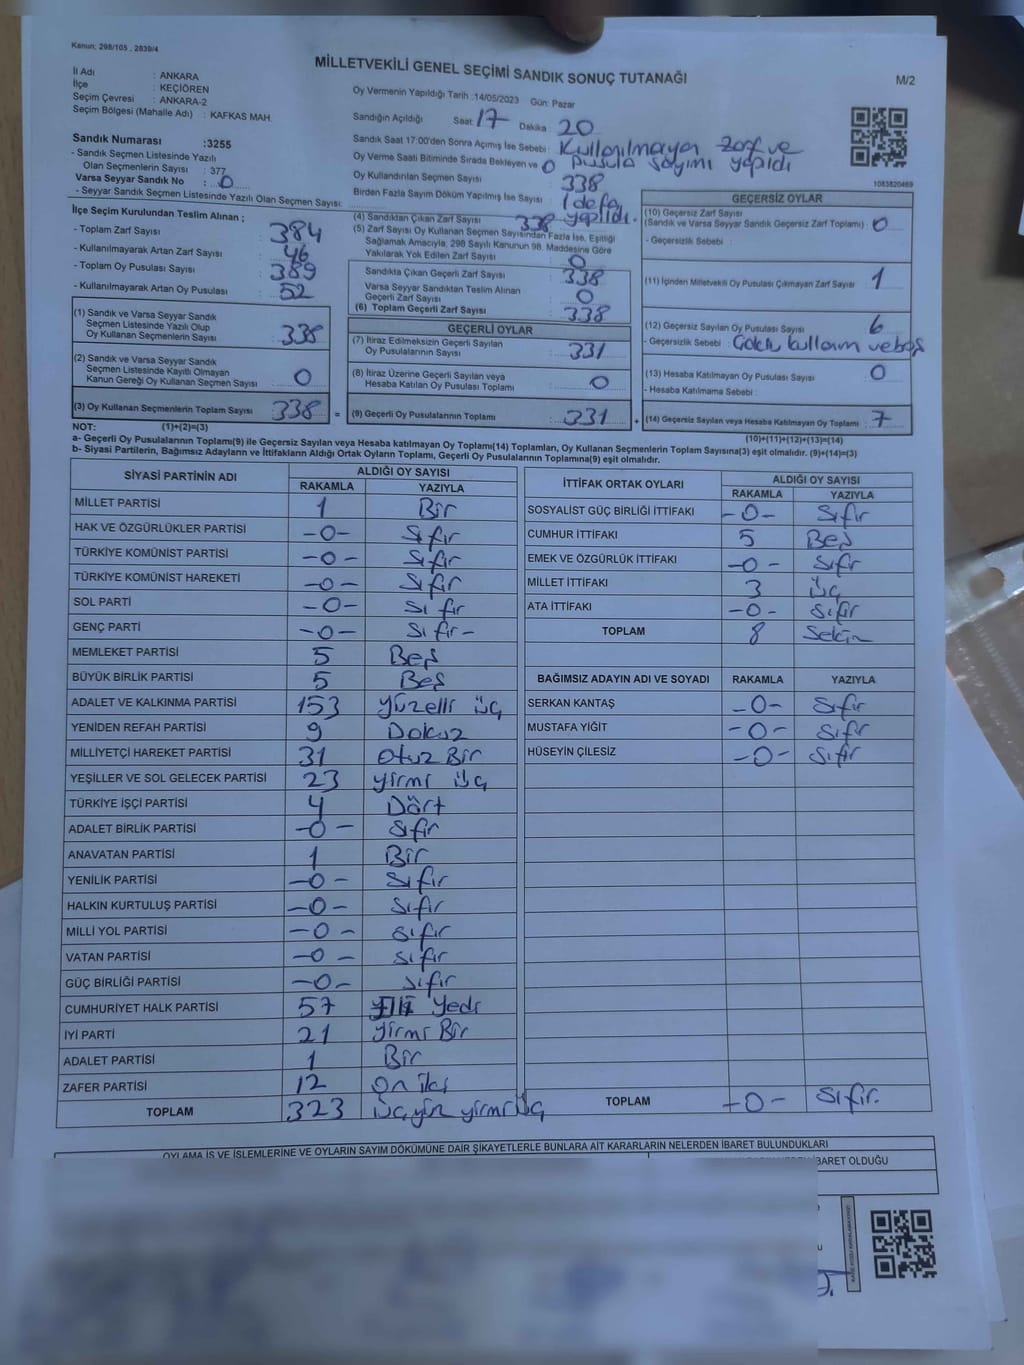 Kanun; 298/105 , 2839/4
MİLLETVEKİLİ GENEL SEÇİMİ SANDIK SONUÇ TUTANAĞI
M/2
İl Adı : ANKARA
İlçe : KEÇİÖREN
Seçim Çevresi : ANKARA-2
Seçim Bölgesi (Mahalle Adı) : KAFKAS MAH.
Sandık Numarası :3255
- Sandık Seçmen Listesinde Yazılı
Olan Seçmenlerin Sayısı : 377
Varsa Seyyar Sandık No : 0
- Seyyar Sandık Seçmen Listesinde Yazılı Olan Seçmen Sayısı:
Oy Vermenin Yapıldığı Tarih :14/05/2023 Gün: Pazar
Sandığın Açıldığı Saat: 17 Dakika 20
Sandık Saat 17:00'den Sonra Açımış İse Sebebi : Kullanılmayan zarf ve
pusula sayımı yapıldı
Oy Verme Saati Bitiminde Sırada Bekleyen ve 0
Oy Kullandırılan Seçmen Sayısı : 338
Birden Fazla Sayım Döküm Yapılmış İse Sayısı : 1 defa
yapıldı.
1083820469
İlçe Seçim Kurulundan Teslim Alınan ;
- Toplam Zarf Sayısı : 384
- Kullanılmayarak Artan Zarf Sayısı : 46
- Toplam Oy Pusulası Sayısı : 389
- Kullanılmayarak Artan Oy Pusulası : 52
(1) Sandık ve Varsa Seyyar Sandık
Seçmen Listesinde Yazılı Olup
Oy Kullanan Seçmenlerin Sayısı : 338
(2) Sandık ve Varsa Seyyar Sandık
Seçmen Listesinde Kayıtlı Olmayan
Kanun Gereği Oy Kullanan Seçmen Sayısı : 0
(3) Oy Kullanan Seçmenlerin Toplam Sayısı : 338 =
(4) Sandıktan Çıkan Zarf Sayısı 338
(5) Zarf Sayısı Oy Kullanan Seçmen Sayısından Fazla İse, Eşitliği
Sağlamak Amacıyla, 298 Sayılı Kanunun 98. Maddesine Göre
Yakılarak Yok Edilen Zarf Sayısı : 0
Sandıkta Çıkan Geçerli Zarf Sayısı : 338
Varsa Seyyar Sandıktan Teslim Alınan
Geçerli Zarf Sayısı : 0
(6) Toplam Geçerli Zarf Sayısı : 338
GEÇERLİ OYLAR
(7) İtiraz Edilmeksizin Geçerli Sayılan
Oy Pusulalarının Sayısı : 331
(8) İtiraz Üzerine Geçerli Sayılan veya
Hesaba Katılan Oy Pusulası Toplamı : 0
(9) Geçerli Oy Pusulalarının Toplamı : 331 +
GEÇERSİZ OYLAR
(10) Geçersiz Zarf Sayısı
(Sandık ve Varsa Seyyar Sandık Geçersiz Zarf Toplamı) : 0
- Geçersizlik Sebebi :
(11) İçinden Milletvekili Oy Pusulası Çıkmayan Zarf Sayısı : 1
(12) Geçersiz Sayılan Oy Pusulası Sayısı : 6
- Geçersizlik Sebebi : kullanım ve boş
(13) Hesaba Katılmayan Oy Pusulası Sayısı : 0
- Hesaba Katılmama Sebebi :
(14) Geçersiz Sayılan veya Hesaba Katılmayan Oy Toplamı : 7
NOT: (1)+(2)=(3)
(10)+(11)+(12)+(13)=(14)
a- Geçerli Oy Pusulalarının Toplamı(9) ile Geçersiz Sayılan veya Hesaba katılmayan Oy Toplamı(14) Toplamları, Oy Kullanan Seçmenlerin Toplam Sayısına(3) eşit olmalıdır. (9)+(14)=(3)
b- Siyasi Partilerin, Bağımsız Adayların ve İttifakların Aldığı Ortak Oyların Toplamı, Geçerli Oy Pusulalarının Toplamına(9) eşit olmalıdır.
SİYASİ PARTİNİN ADI ALDIĞI OY SAYISI
RAKAMLA YAZIYLA
MİLLET PARTİSİ 1 Bir
HAK VE ÖZGÜRLÜKLER PARTİSİ -0- Sıfır
TÜRKİYE KOMÜNİST PARTİSİ -0- Sıfır
TÜRKİYE KOMÜNİST HAREKETİ -0- Sıfır
SOL PARTİ -0- Sıfır
GENÇ PARTİ -0- Sıfır-
MEMLEKET PARTİSİ 5 Beş
BÜYÜK BİRLİK PARTİSİ 5 Beş
ADALET VE KALKINMA PARTİSİ 153 yüzelli üç
YENİDEN REFAH PARTİSİ 9 Dokuz
MİLLİYETÇİ HAREKET PARTİSİ 31 Otuz Bir
YEŞİLLER VE SOL GELECEK PARTİSİ 23 yirmi üç
TÜRKİYE İŞÇİ PARTİSİ 4 Dört
ADALET BİRLİK PARTİSİ -0- Sıfır
ANAVATAN PARTİSİ 1 Bir
YENİLİK PARTİSİ -0- Sıfır
HALKIN KURTULUŞ PARTİSİ -0- Sıfır
MİLLİ YOL PARTİSİ -0- Sıfır
VATAN PARTİSİ -0- Sıfır
GÜÇ BİRLİĞİ PARTİSİ -0- Sıfır
CUMHURİYET HALK PARTİSİ 57 Yedi
İYİ PARTİ 21 Yirmi Bir
ADALET PARTİSİ 1 Bir
ZAFER PARTİSİ 12 On iki
TOPLAM 323 Üçyüz yirmi üç
İTTİFAK ORTAK OYLARI ALDIĞI OY SAYISI
RAKAMLA YAZIYLA
SOSYALİST GÜÇ BİRLİĞİ İTTİFAKI -0- Sıfır
CUMHUR İTTİFAKI 5 Beş
EMEK VE ÖZGÜRLÜK İTTİFAKI -0- Sıfır
MİLLET İTTİFAKI 3 üç
ATA İTTİFAKI -0- Sıfır
TOPLAM 8 Sekiz
BAĞIMSIZ ADAYIN ADI VE SOYADI RAKAMLA YAZIYLA
SERKAN KANTAŞ -0- Sıfır
MUSTAFA YİĞİT -0- Sıfır
HÜSEYİN ÇİLESİZ -0- Sıfır
TOPLAM -0- Sıfır.
OYLAMA İŞ VE İŞLEMLERİNE VE OYLARIN SAYIM DÖKÜMÜNE DAİR ŞİKAYETLERLE BUNLARA AİT KARARLARIN NELERDEN İBARET BULUNDUKLARI
İBARET OLDUĞU